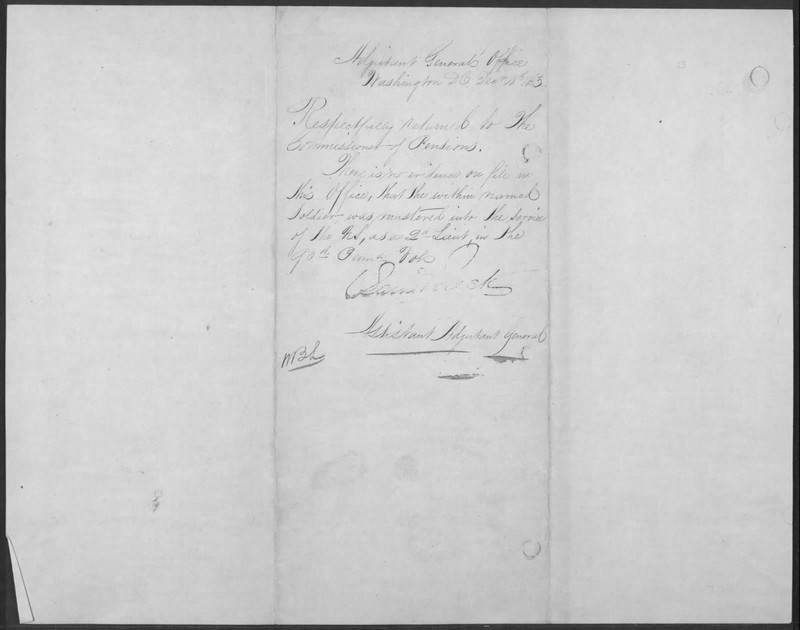 Adjutant General's Office
Washington D.C. Dec. 18th 1863.
Respectfully returned to the
Commissioner of Pensions.
There is no evidence on file in
this Office, that the within named
Soldier was mustered into the Service
of the U.S, as a 2d Lieut, in the
Penna Vols
Saml Breck
Assistant Adjutant General